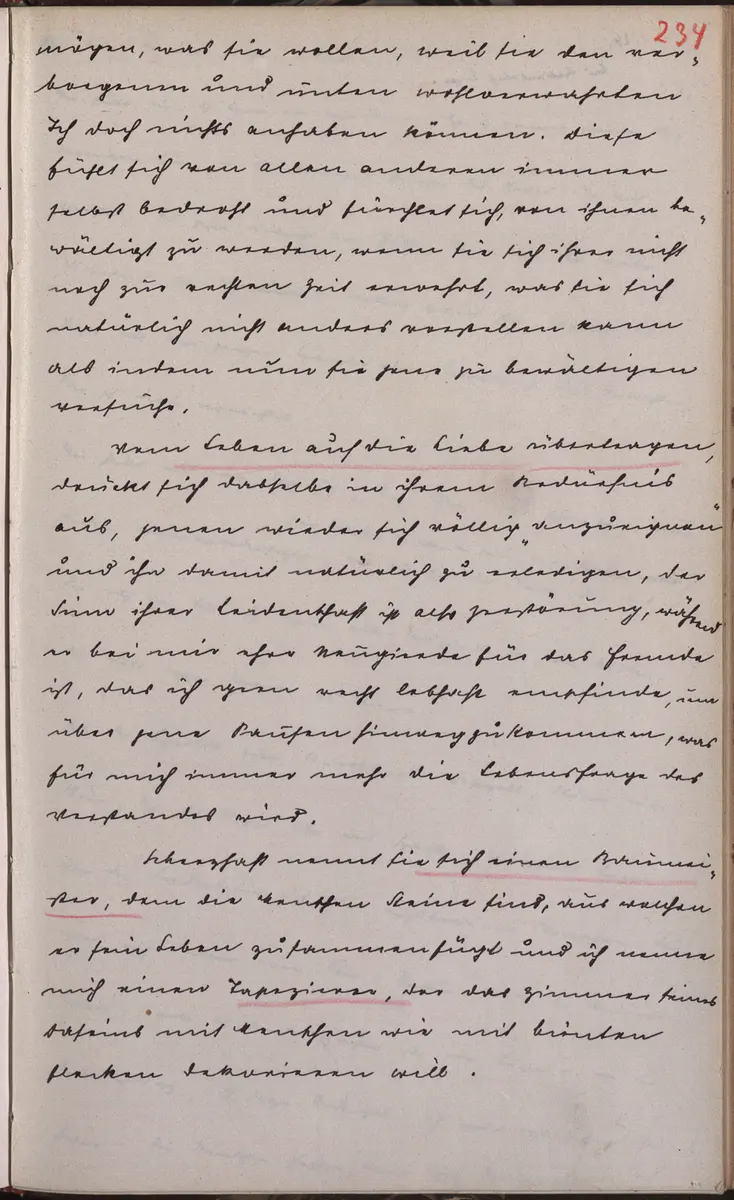 234
mögen, was sie wollen, weil sie dem ver-
borgenen und innen wohlverwahrten
Ich doch nichts anhaben können. Diese
fühlt sich von allen anderen immer
selbst bedroht und fürchtet sich, von ihnen be-
wältigt zu werden, wenn sie sich ihrer nicht
noch zur rechten Zeit erwehrt, was sie sich
natürlich nicht anders vorstellen kann
als indem nun sie jene zu bewältigen
versuche.
Vom Leben auf die Liebe übertragen,
drückt sich dasselbe in ihrem Bedürfnis
aus, jenen wieder sich völlig „anzueignen“
und ihn damit natürlich zu erledigen, der
Sinn ihrer Leidenschaft ist also Zerstörung, während
er bei mir eher Neugierde für das Fremde
ist, das ich gern recht lebhaft empfinde, um
über jene Pausen hinwegzukommen, was
für mich immer mehr die Lebensfrage des
Verstandes wird.
Scherzhaft nennt sie sich einen Baumei-
ster, dem die Menschen Steine sind, aus welchen
er sein Leben zusammenfügt und ich nenne
mich einen Tapezierer, der das Zimmer seines
Daseins mit Menschen wie mit bunten
Flecken dekorieren will.